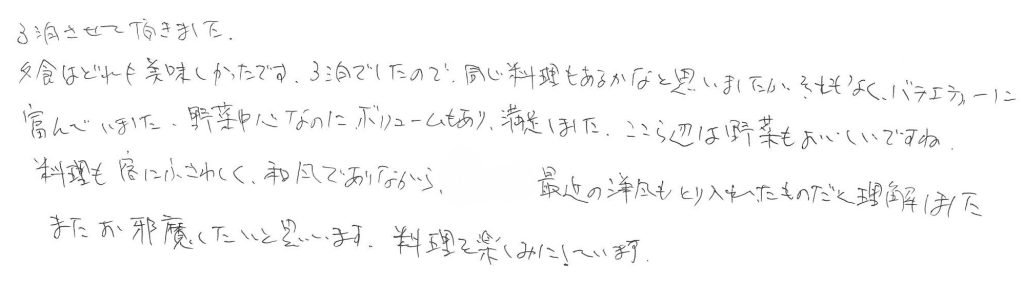 3泊させて頂きました.
夕食はどれも美味しかったです. 3泊でしたので、同じ料理もあるかなと思いましたが、それもなく、バラエティーに
富んでいました. 野菜中心なのに、ボリュームもあり、満足しました. ここら辺は野菜もおいしいですね.
料理も宿にふさわしく、和風でありながら、 最近の洋風もとり入れたものだと理解しました
またお邪魔したいと思います. 料理を楽しみにしています.